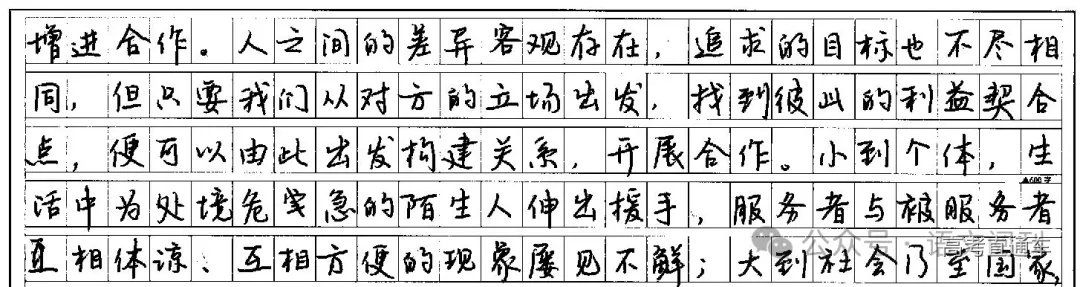 增进合作。人之间的差异客观存在，追求的目标也不尽相
同，但只要我们从对方的立场出发，找到彼此的利益契合
点，便可以由此出发构建关系，开展合作。小到个体，生
▲600字
活中为处境危突急的陌生人伸出援手，服务者与被服务者
公众号·语文
高考直通车
互相体谅、互相方便的现象屡见不鲜；大到社会乃至国家，